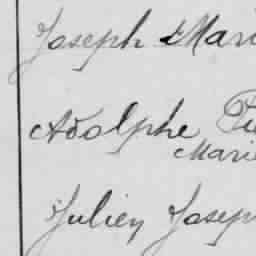 Joseph Mari
Adolphe Pie
Marie
Julien Josep